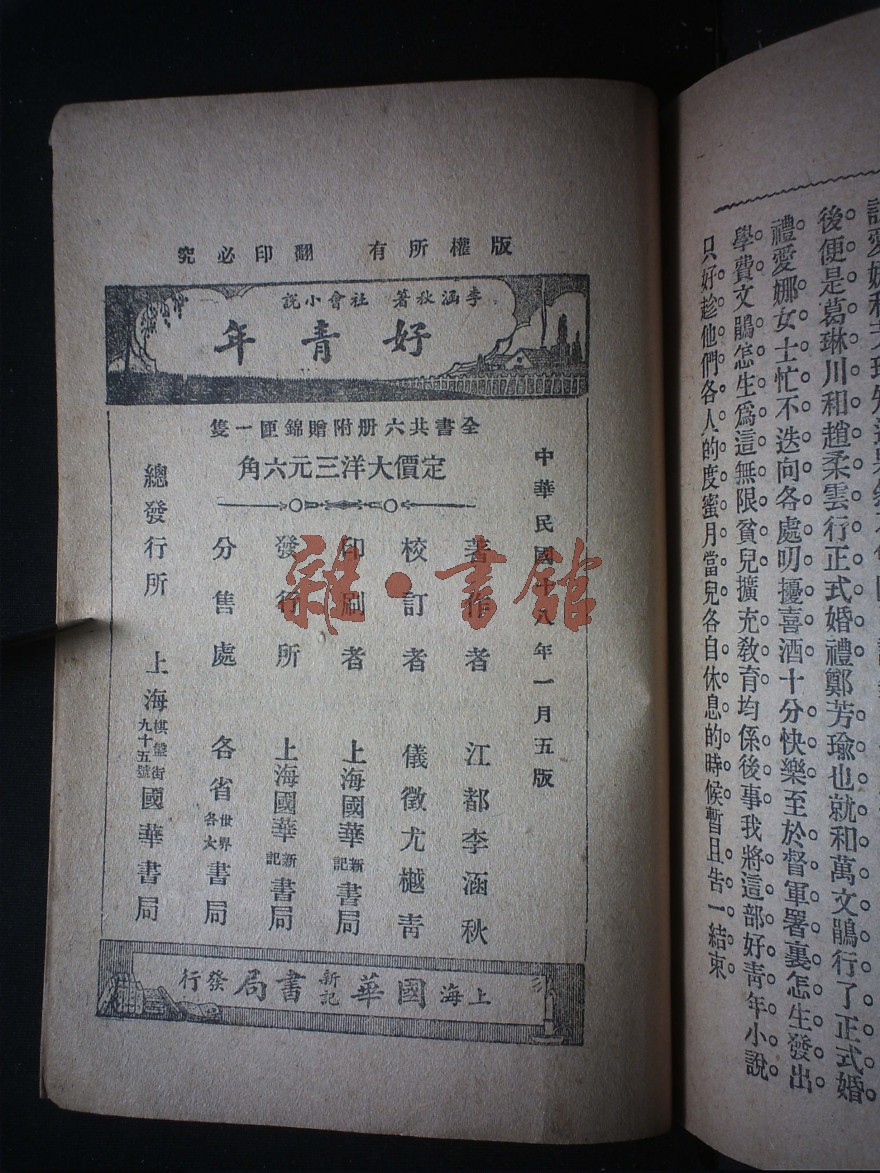 後便是葛琳川和趙柔雲行正式婚禮鄭芳瑜也就和萬文鵑行了正式婚
禮愛娜女士忙不迭向各處叨擾喜酒十分快樂至於督軍署裏怎生發出
學費文鵑怎生爲這無限貧兒擴充敎育均係後事我將這部好靑年小說
只好趁他們各人的度蜜月當兒各自休息的時候暫且告一結束
版權所有 翻印必究
李涵秋著 社會小說
好青年
全書共六册附贈錦匣一隻
定價大洋三元六角
中華民國十八年一月五版
著作者 江都李涵秋
校訂者 儀徵尤樾青
印刷者 上海國華新記書局
發行所 上海國華新記書局
分售處 各省世界各大書局
總發行所 上海棋盤街九十五號國華書局
上海國華新記書局發行
雜·書館